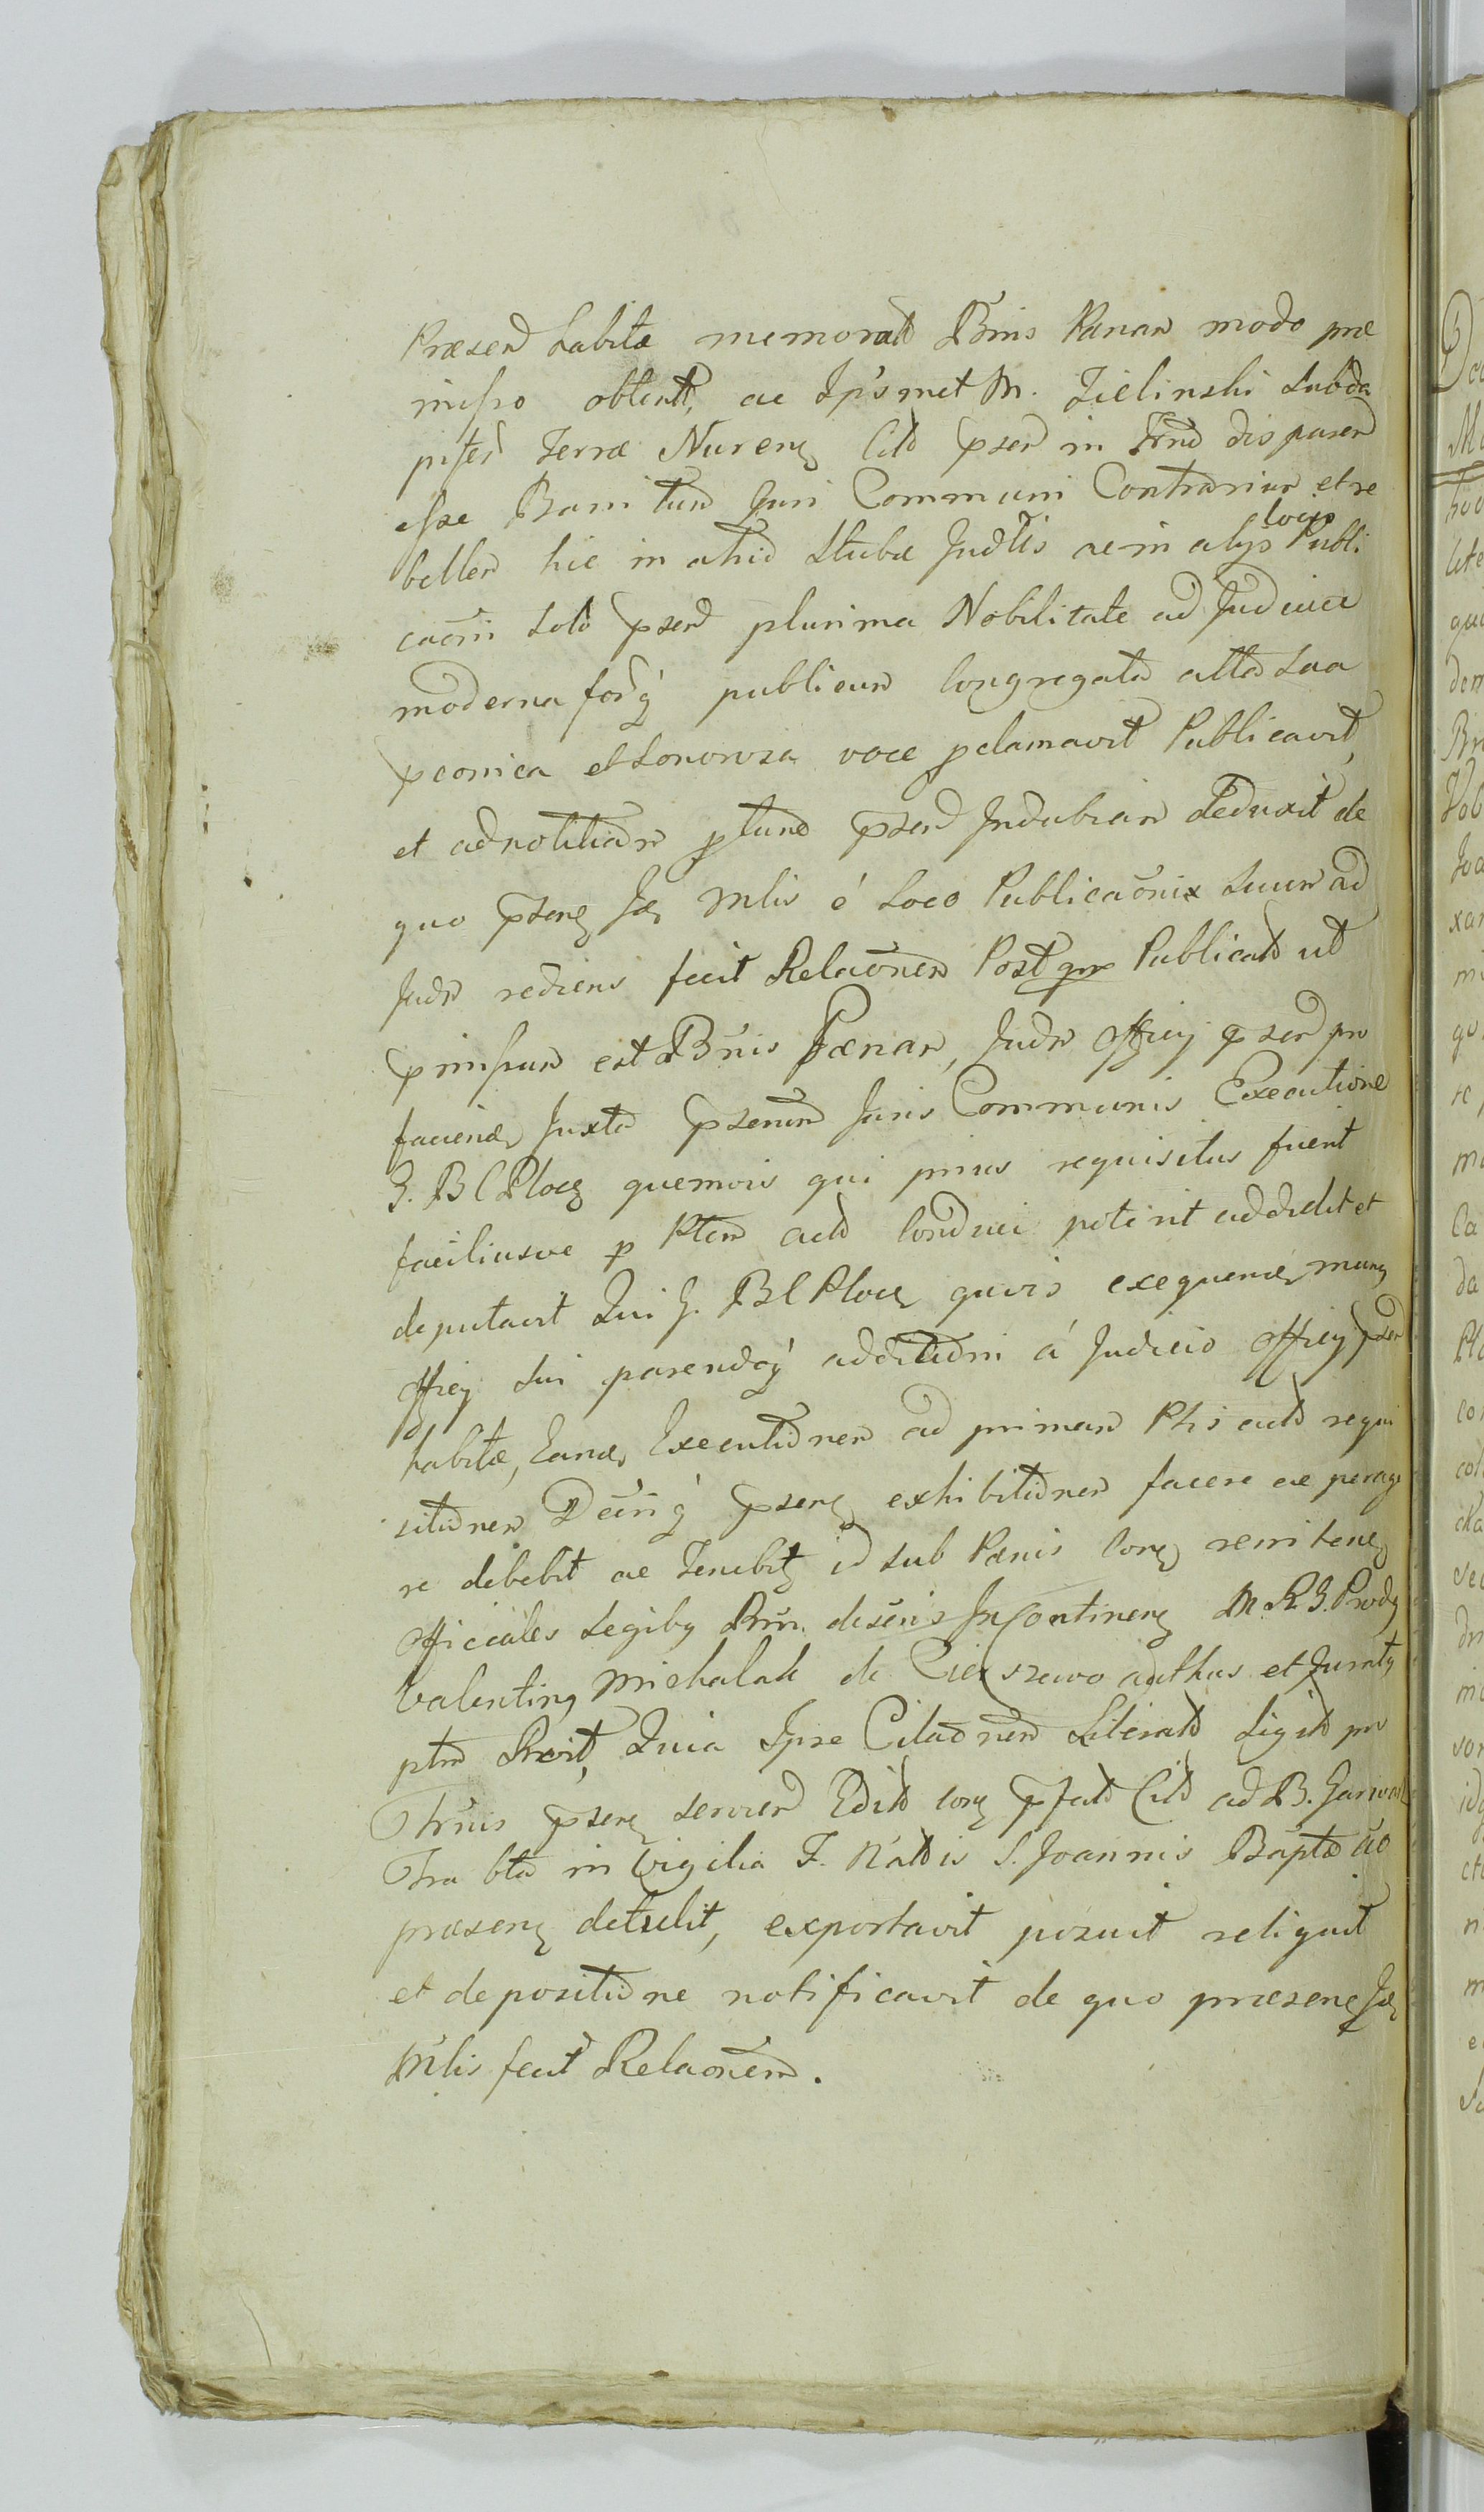 Præsen habitæ memorat Bnis Pænan modo præ
misso obtent, ac Ipsmet M. Zielinski Subda
piferi Terræ Nurens Citt psen in Trno disparen
esse Banitum Juri Communi Contrarium et re
bellem hic in atrio Stubæ Judlis ac in alys locis Publi
caoni solo psen plurima Nobilitate ad Judicia
moderna forq publicum Congregata alta sua
pconica et sonorosa voce pclamavit Publicavit,
et ad notitiam ptium psen Indubiam deduxit de
quo psens Jdem Mlis é Loco Publicaonis suum ad
Judm rediens fecit Relaonem Post qm Publicatt ut
pmissum est Bnis Pænam, Judm Officy psen pro
faciend Juxta psentium Juris Communis Executione
G. B C Ploc quemvis qui prius requisitus fuerit
faciliusve p Ptem actt conduci poterit addidit et
deputavit Qui G. BC Ploc quivis exequend muns
Officy sui parendoq additioni á Judicio Officy psen
habitæ, Eand Executionem ad primam Ptis actt requi
sitionem Decriq psens exhibitionem facere ac perage
re debebit ac Tenebit id sub Pænis Cont renitens
Officiales Legibus Pnn. descris In Continens M.R.G. Prods
Valentins Michalak de Cierszewo authus et Jurats
ptm Rexit, Quia Ipse Citaonem Literatt Sigitt pro
Trnis psens servien Editt cont pfatt Citt ad B. Garwar
Tra bta in Vigilia F. Natt is S. Joannis Baptæ ao
præsens detulit, exportavit posuit reliquit
et de positione notificavit de quo præsens Jdem
Mlis fecit Relaonem.